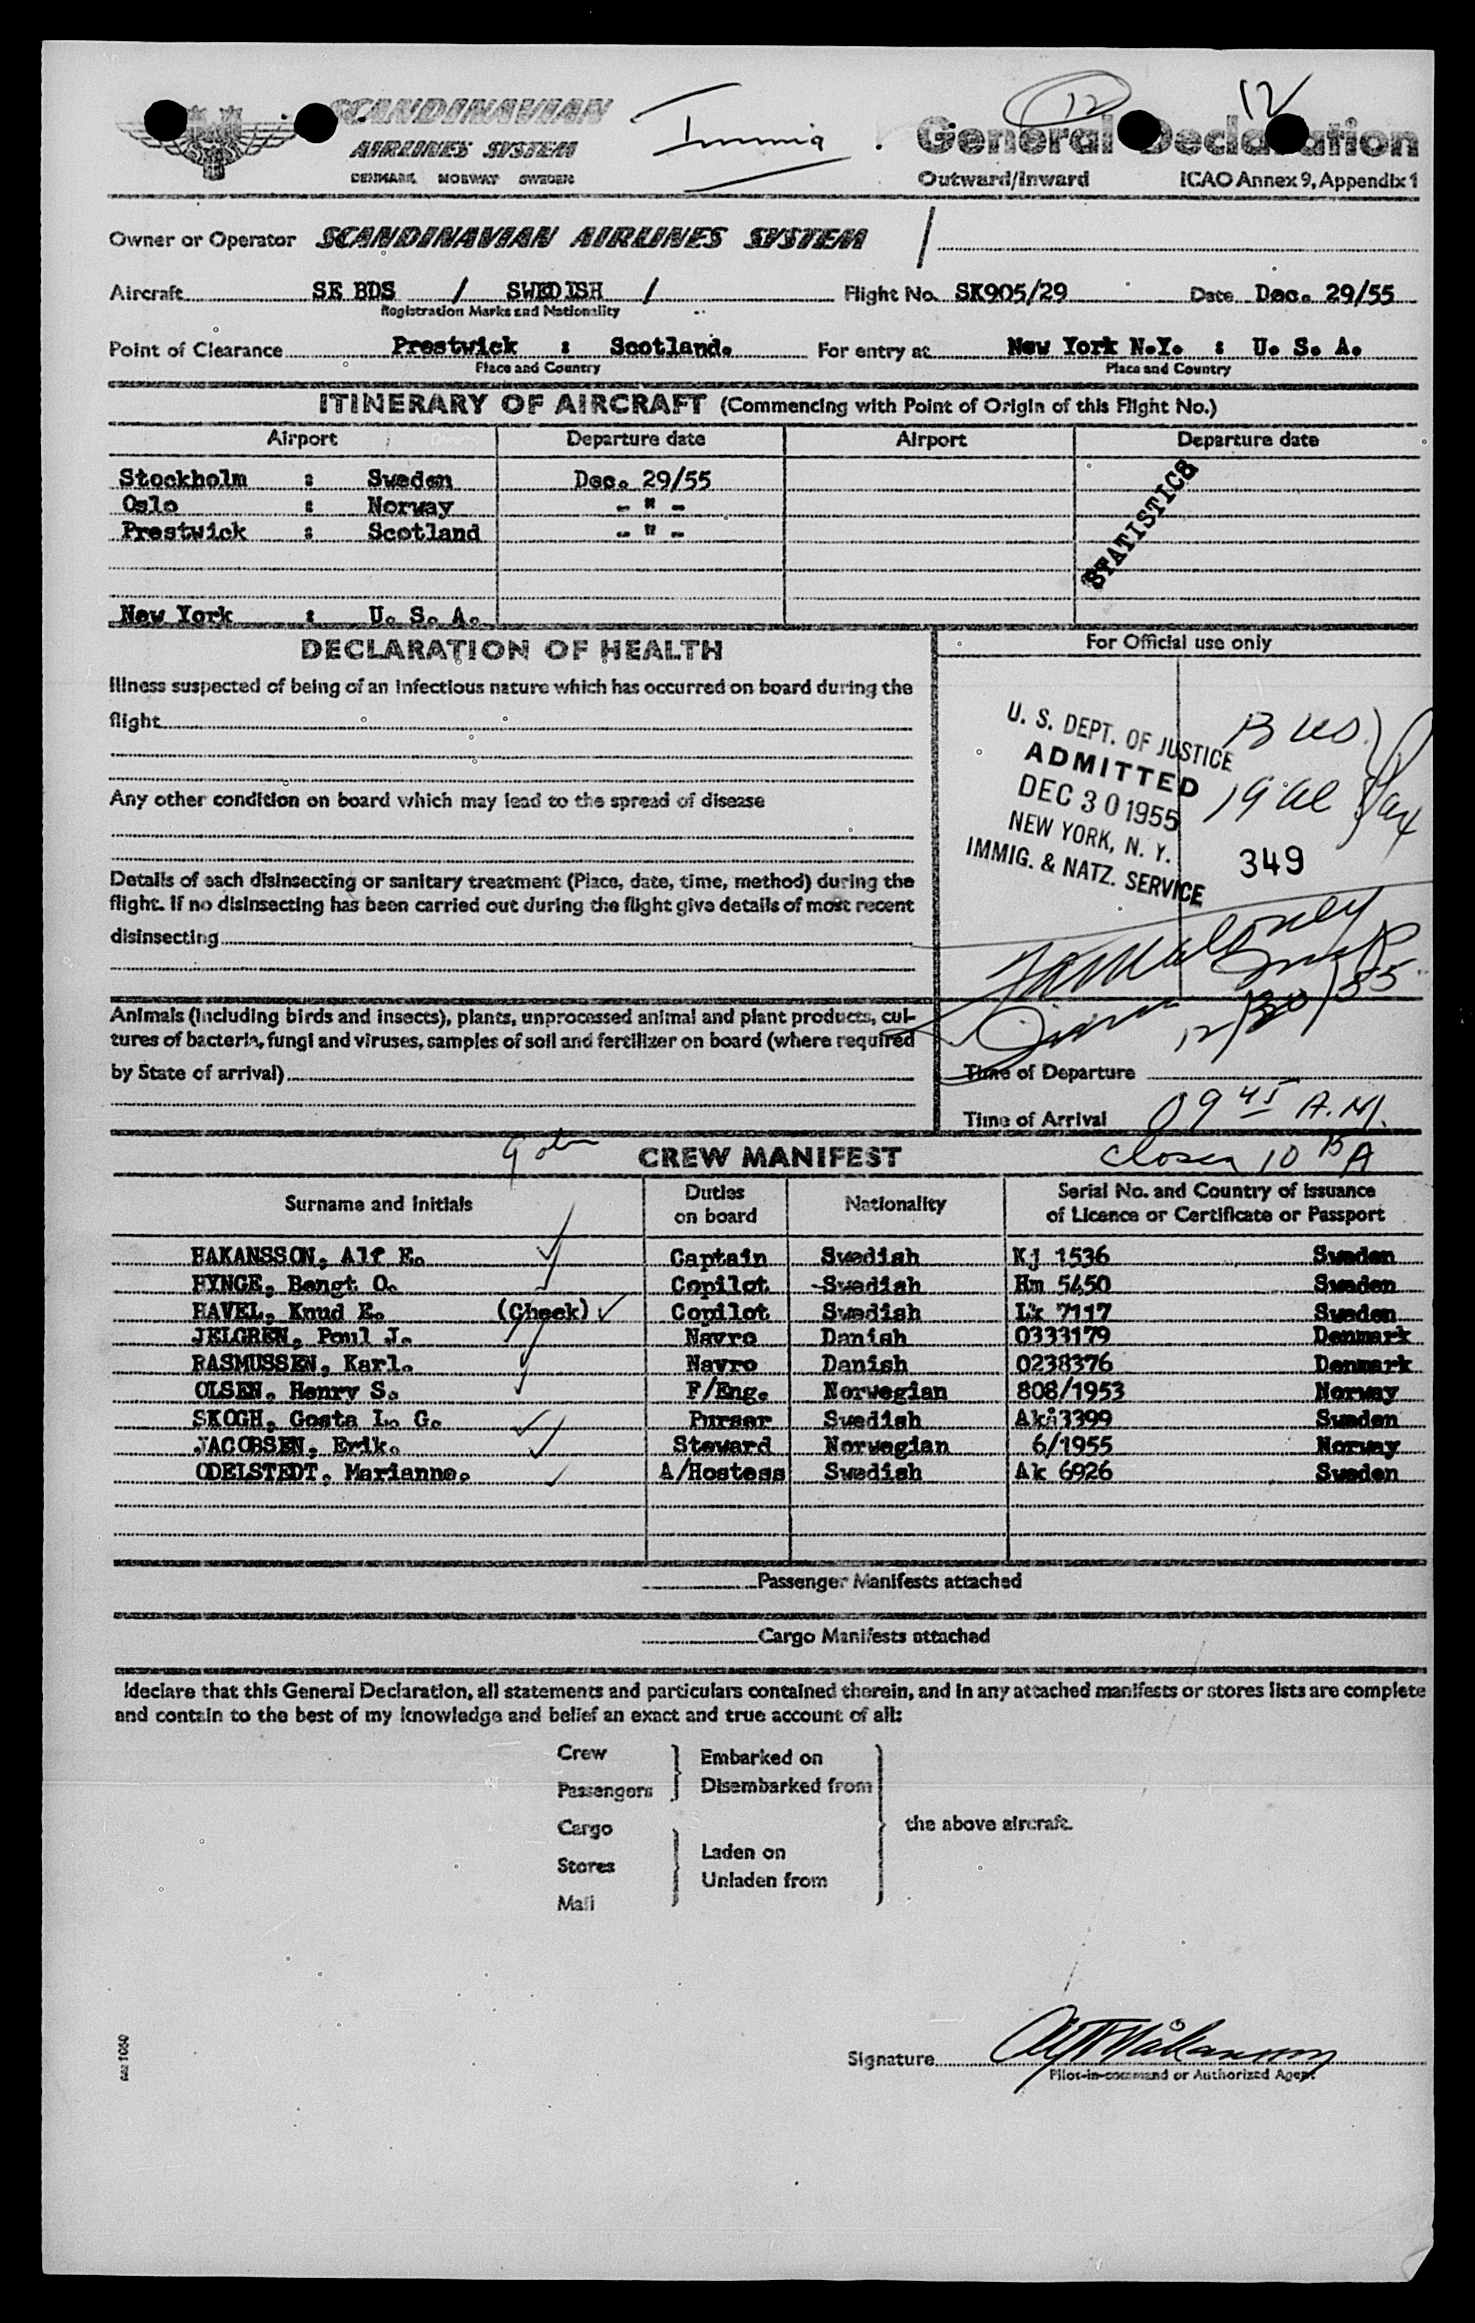 12
12
SCANDINAVIAN
AIRLINES SYSTEM
DENMARK NORWAY SWEDEN
Immig
General Declaration
Outward/Inward ICAO Annex 9, Appendix 1
Owner or Operator SCANDINAVIAN AIRLINES SYSTEM /
Aircraft SE BDS / SWEDISH / Flight No. SK905/29 Date Dec. 29/55
Registration Marks and Nationality
Point of Clearance Prestwick : Scotland. For entry at New York N.Y. : U. S. A.
Place and Country Place and Country
ITINERARY OF AIRCRAFT (Commencing with Point of Origin of this Flight No.)
Airport Departure date Airport Departure date
Stockholm : Sweden Dec. 29/55
Oslo : Norway - " -
Prestwick : Scotland - " -
STATISTICS
New York : U. S. A.
DECLARATION OF HEALTH
For Official use only
Illness suspected of being of an infectious nature which has occurred on board during the
flight
Any other condition on board which may lead to the spread of disease
Details of each disinsecting or sanitary treatment (Place, date, time, method) during the
flight. If no disinsecting has been carried out during the flight give details of most recent
disinsecting
U. S. DEPT. OF JUSTICE
ADMITTED
DEC 30 1955
NEW YORK, N. Y.
IMMIG. & NATZ. SERVICE
349
12/30/55
Animals (including birds and insects), plants, unprocessed animal and plant products, cul-
tures of bacteria, fungi and viruses, samples of soil and fertilizer on board (where required
by State of arrival)
Time of Departure
Time of Arrival 09 45 A.M.
CREW MANIFEST
Closed 10 15 A
Surname and Initials Duties on board Nationality Serial No. and Country of Issuance of Licence or Certificate or Passport
HAKANSSON, Alf E. Captain Swedish Kj 1536 Sweden
HYNGE, Bengt O. Copilot -Swedish Hm 5450 Sweden
HAVEL, Knud E. (Check) Copilot Swedish Lk 7117 Sweden
JELGREN, Poul J. Navro Danish 0333179 Denmark
RASMUSSEN, Karl. Navro Danish 0238376 Denmark
OLSEN. Henry S. F/Eng. Norwegian 808/1953 Norway
SKOGH, Gosta L. G. Purser Swedish Akå3399 Sweden
JACOBSEN, Erik. Steward Norwegian 6/1955 Norway
ODELSTEDT, Marianne. A/Hostess Swedish Ak 6926 Sweden
Passenger Manifests attached
Cargo Manifests attached
I declare that this General Declaration, all statements and particulars contained therein, and in any attached manifests or stores lists are complete
and contain to the best of my knowledge and belief an exact and true account of all:
Crew
Passengers
Embarked on
Disembarked from
Cargo
Stores
Mail
Laden on
Unladen from
the above aircraft.
Signature Alf Håkansson
Pilot-in-command or Authorized Agent